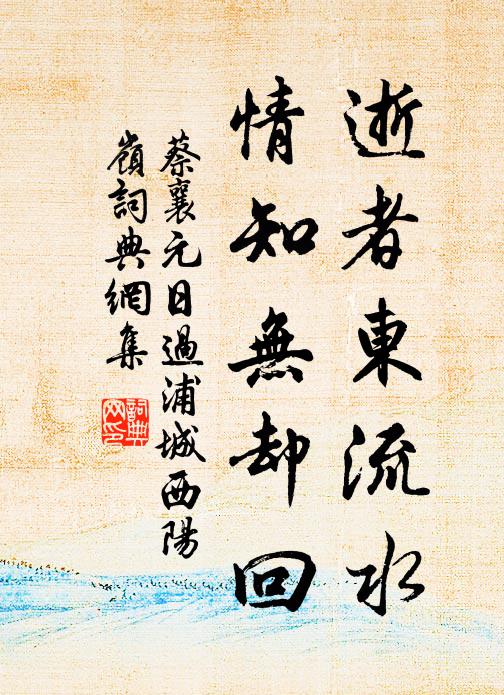 逝者東流水
情知無却回
蔡襄元日過浦城西陽
嶺詞典網集
詞典
网印